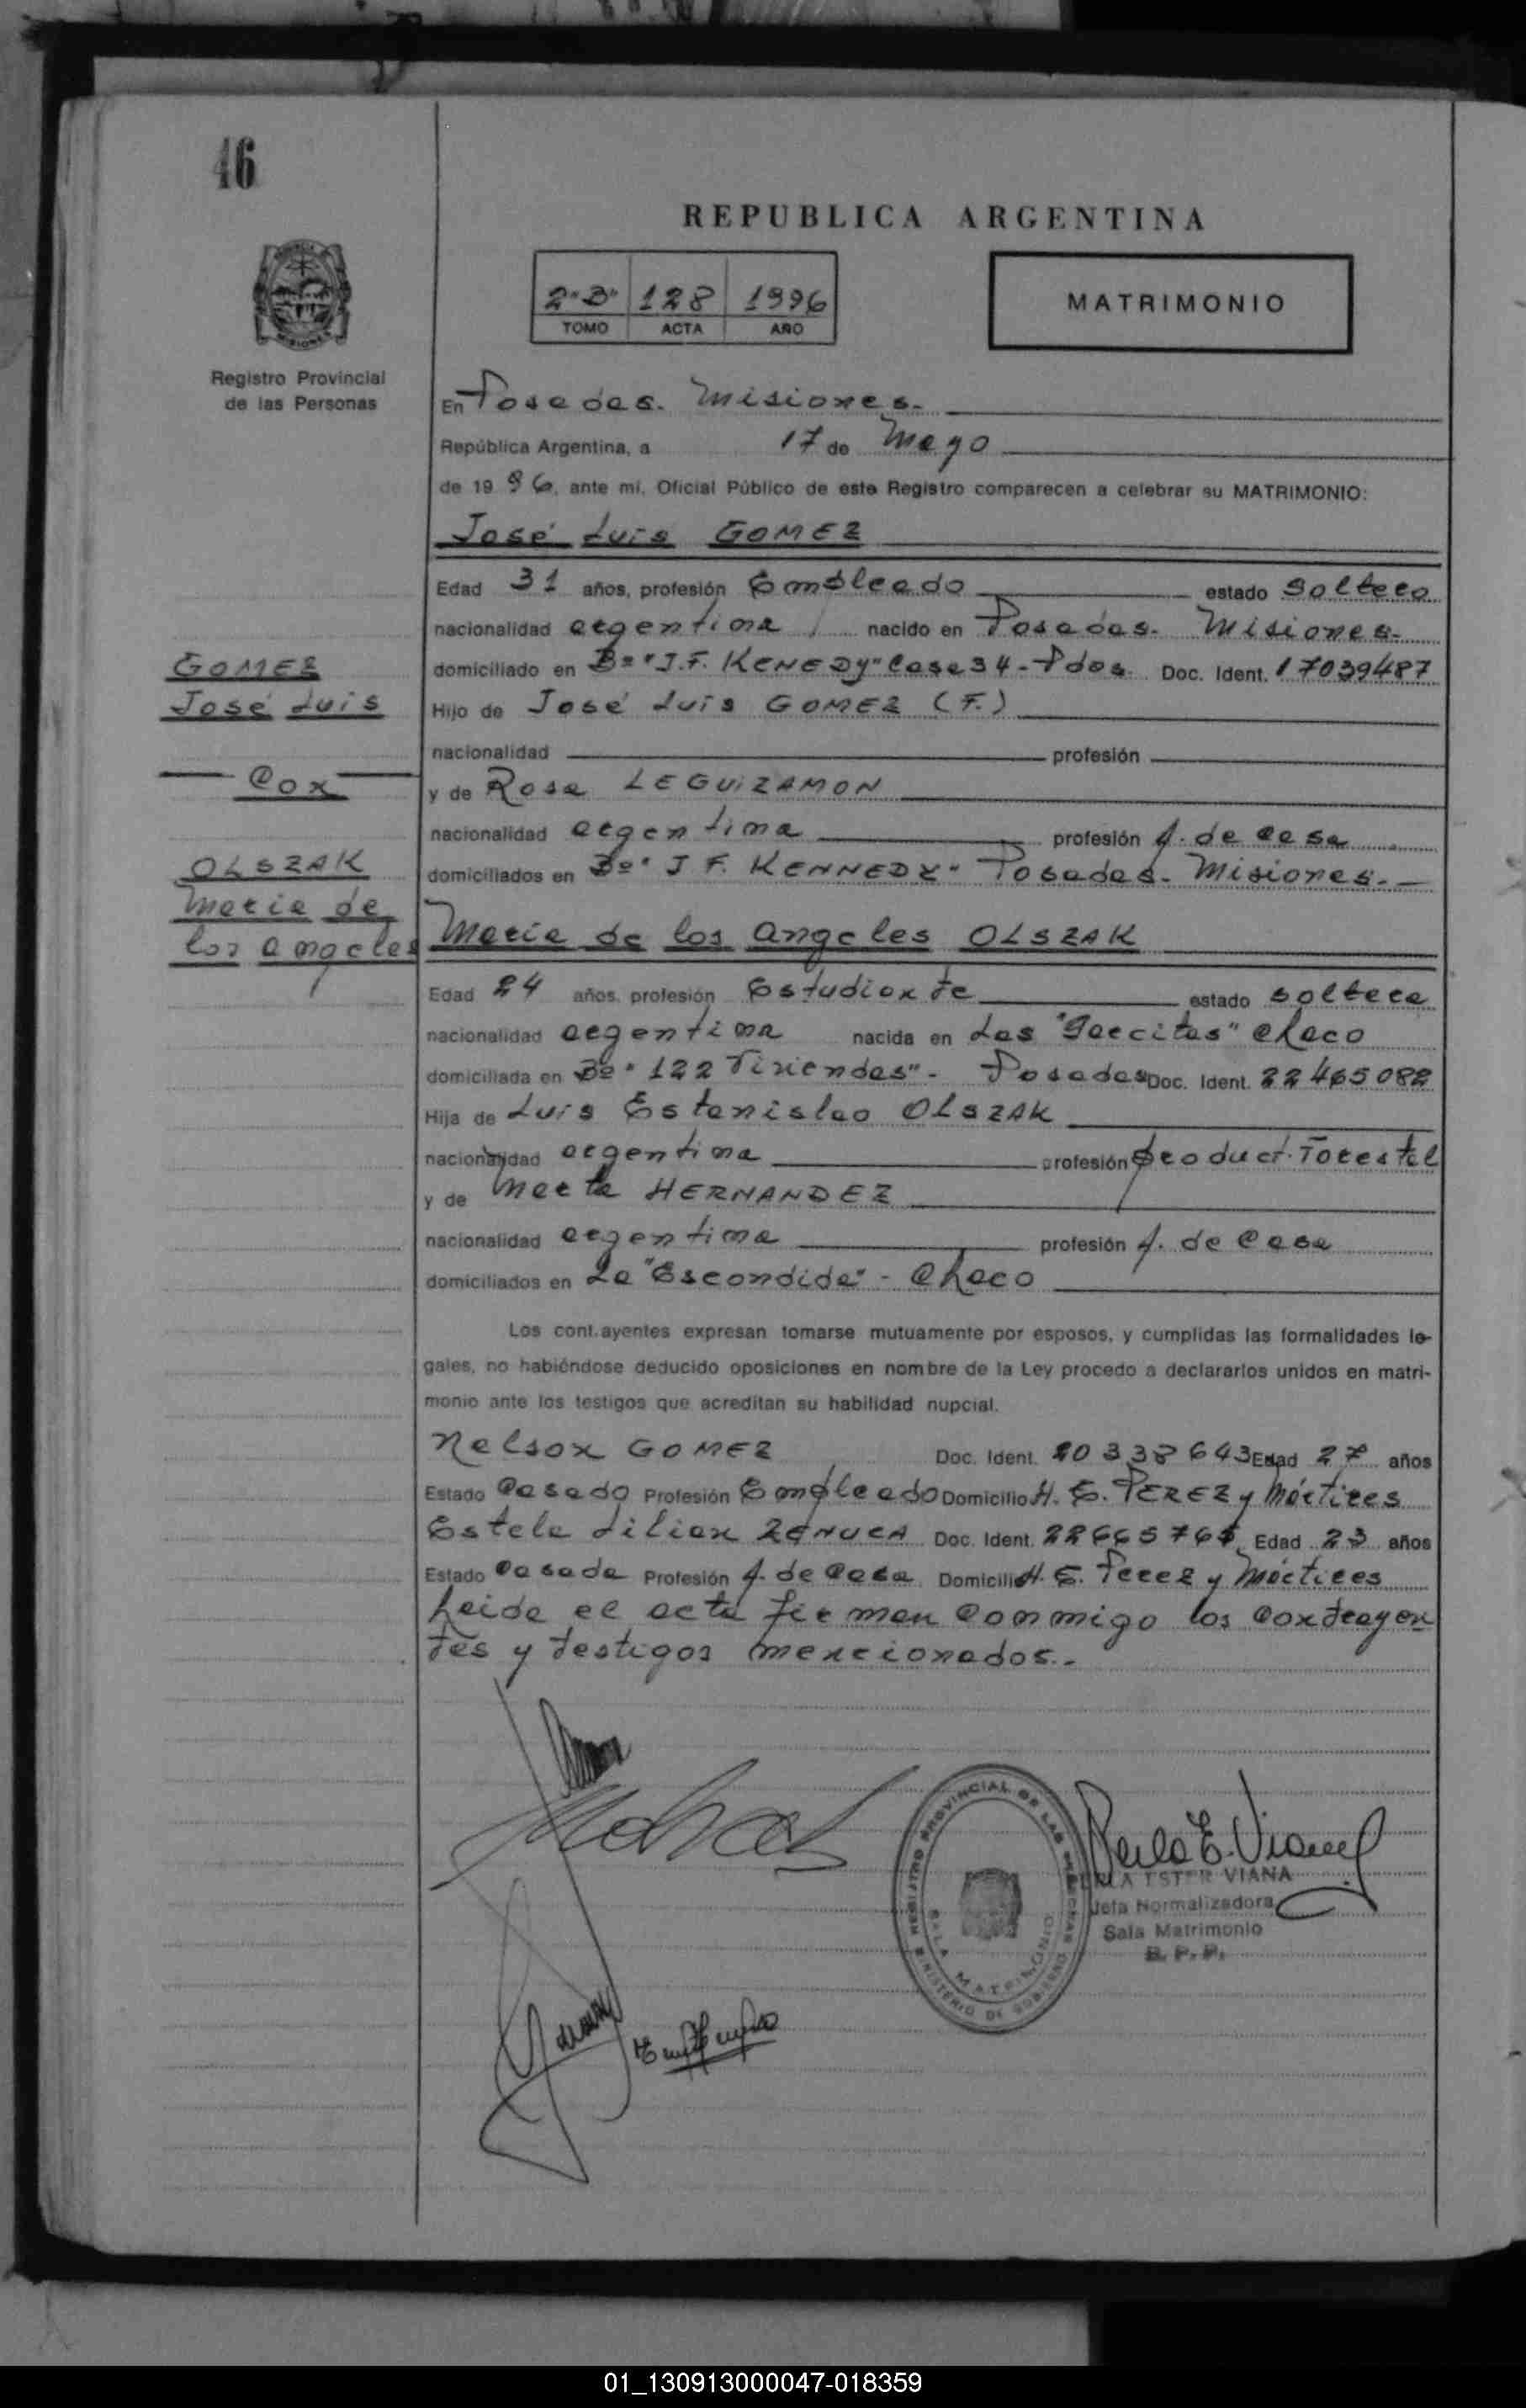 46
REPUBLICA ARGENTINA
2"B" 128 1996
TOMO ACTA AÑO
MATRIMONIO
Registro Provincial
de las Personas
En Posadas. Misiones.-
República Argentina, a 17 de Mayo
de 19 96, ante mí, Oficial Público de este Registro comparecen a celebrar su MATRIMONIO:
José Luis GOMEZ
Edad 31 años, profesión Empleado estado soltero
nacionalidad argentina nacido en Posadas- Misiones-
domiciliado en Bº "J.F. KENEDY" Casa 34 - Pdas. Doc. Ident. 17039487
GOMEZ
José Luis
Hijo de José Luis GOMEZ (F.)
nacionalidad profesión
Con
y de Rosa LEGUIZAMON
nacionalidad argentina profesión A. de Casa
domiciliados en Bº "J F. KENNEDY" Posadas- Misiones.-
OLSZAK
María de
los Angeles
María de los Angeles OLSZAK
Edad 24 años, profesión Estudiante estado soltera
nacionalidad argentina nacida en Las "Garcitas" Chaco
domiciliada en Bº "122 Viviendas"- Posadas Doc. Ident. 22465082
Hija de Luis Estanislao OLSZAK
nacionalidad argentina profesión product. Forestal
y de Marta HERNANDEZ
nacionalidad argentina profesión A. de Casa
domiciliados en La "Escondida" - Chaco
Los cont.ayentes expresan tomarse mutuamente por esposos, y cumplidas las formalidades le-
gales, no habiéndose deducido oposiciones en nombre de la Ley procedo a declararlos unidos en matri-
monio ante los testigos que acreditan su habilidad nupcial.
Nelson GOMEZ Doc. Ident. 20338643 Edad 27 años
Estado Casado Profesión Empleado Domicilio H. E. PEREZ y Mártires
Estela Lilian Doc. Ident. Edad 23 años
Estado Casada Profesión A. de Casa Domicilio H. E. Perez y Mártires
Leída el acta firman conmigo los contrayen
tes y testigos mencionados.-
REGISTRO PROVINCIAL DE LAS PERSONAS
MINISTERIO DE GOBIERNO
SALA MATRIMONIO
Perla E. Viana
PERLA ESTER VIANA
Jefa Normalizadora
Sala Matrimonio
R. P. P.
01_130913000047-018359